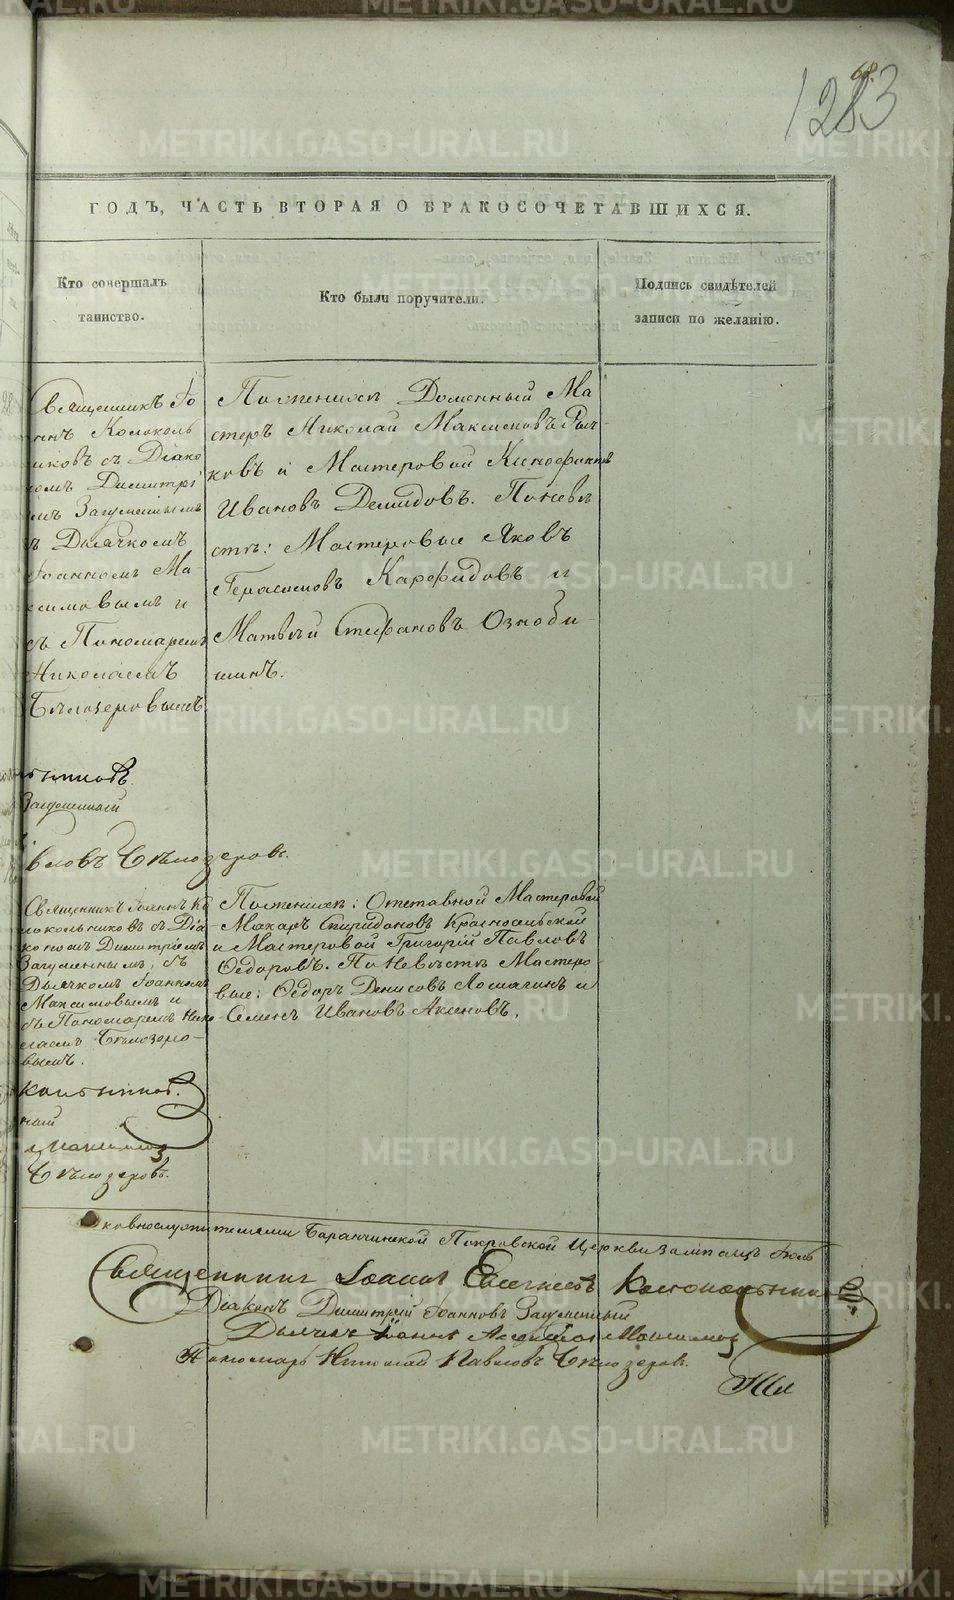 68.
1283
ГОДЪ, ЧАСТЬ ВТОРАЯ О БРАКОСОЧЕТАВШИХСЯ.
Кто совершалъ
таинство.
Кто были поручители.
Подпись свидѣтелей
записи по желанію.
Священникъ Іо
аннъ Колоколь
никовъ съ Діако
номъ Димитрі
емъ Загуменнымъ
съ Дьячкомъ
Іоанномъ Ма-
ксимовымъ и
съ Пономаремъ
Николаемъ
Бѣлозеровымъ.
По женихѣ Доменный Ма
стеръ Николай Максимовъ Рыч
ковъ и Мастеровой Ксенофонтъ
Ивановъ Демидовъ. По невѣ
стѣ: Мастеровые Яковъ
Герасимовъ Карфидовъ и
Матвѣй Стефановъ Ознобы-
шинъ.
Загуменный
Бѣлозеровъ.
Священникъ Іоаннъ Ко
локольниковъ съ Діа-
кономъ Димитріемъ
Загуменнымъ, съ
Дьячкомъ Іоанномъ
Максимовымъ и
съ Пономаремъ Нико
лаемъ Бѣлозеро-
вымъ.
По женихѣ: Отставной Мастеровой
Макаръ Спиридоновъ Красносельской
и Мастеровой Григорій Павловъ
Ѳедоровъ. По Невѣстѣ Мастеро-
вые: Ѳедоръ Денисовъ Ломагинъ и
Семенъ Ивановъ Аксеновъ.
ный
Максимов
Бѣлозеровъ.
ковнослужителями Баранчинской Покровской Церкви за мѣсяцъ Іюль
Священникъ Іоаннъ Евгеніевъ Колокольников
Діаконъ Димитрій Іоанновъ Загуменный
Дьячекъ Іоаннъ Максимов
Пономарь Николай Павловъ Бѣлозеровъ.
METRIKI.GASO-URAL.RU